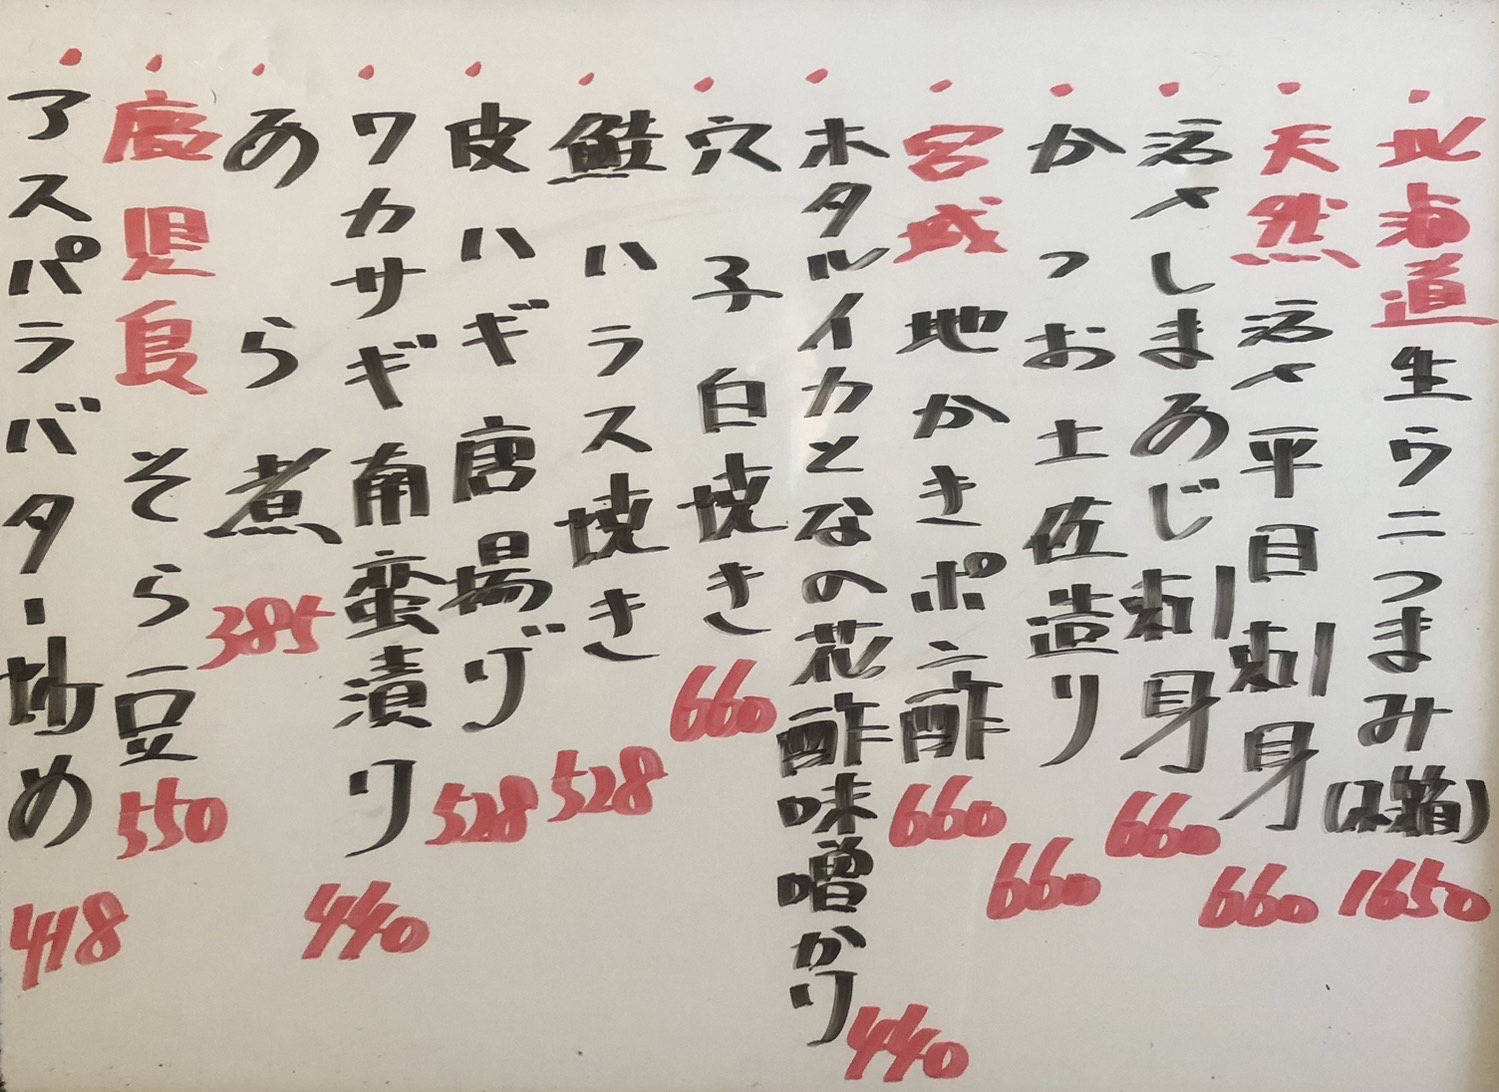 ・北海道生ウニつまみ(木箱)1650
・天然活〆平目刺身660
・活〆しまあじ刺身660
・かつお土佐造り660
・宮城地かきポン酢660
・ホタルイカとなの花酢味噌かけ440
・穴子白焼き660
・鮭ハラス焼き528
・皮ハギ唐揚げ528
・ワカサギ南蛮漬け440
・あら煮385
・鹿児島そら豆550
・アスパラバター炒め418